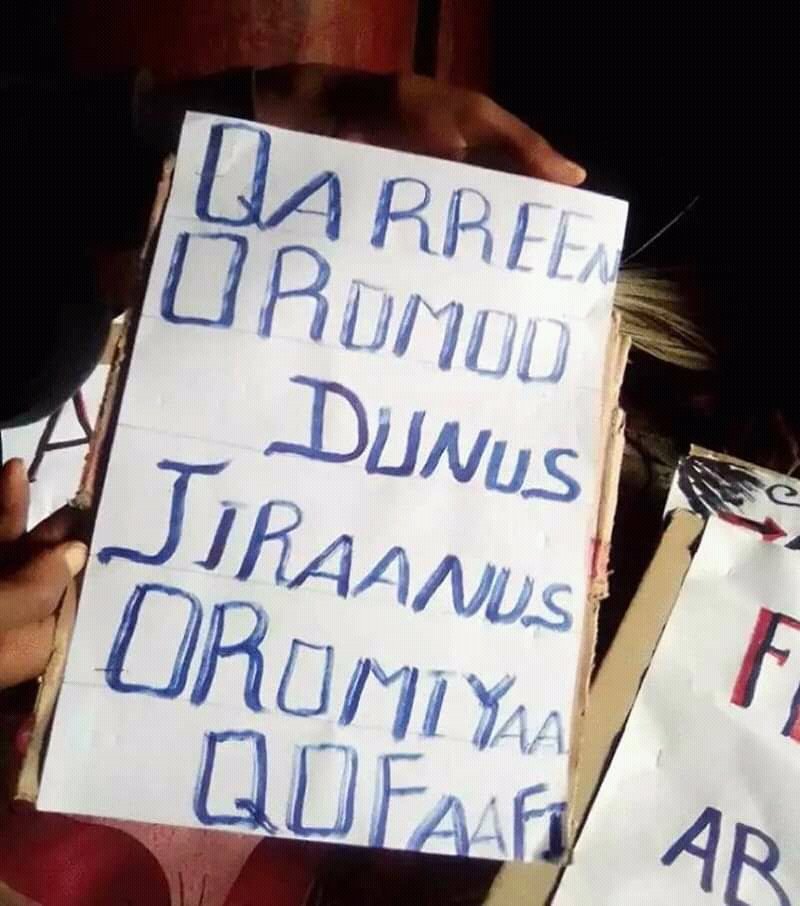 QARREEN
OROMOO
DUNUS
JIRAANUS
OROMIYAA
QOFAAFI
A
AB